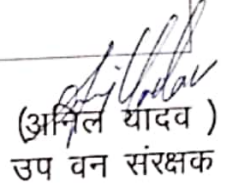 (अनिल यादव )
उप वन संरक्षक